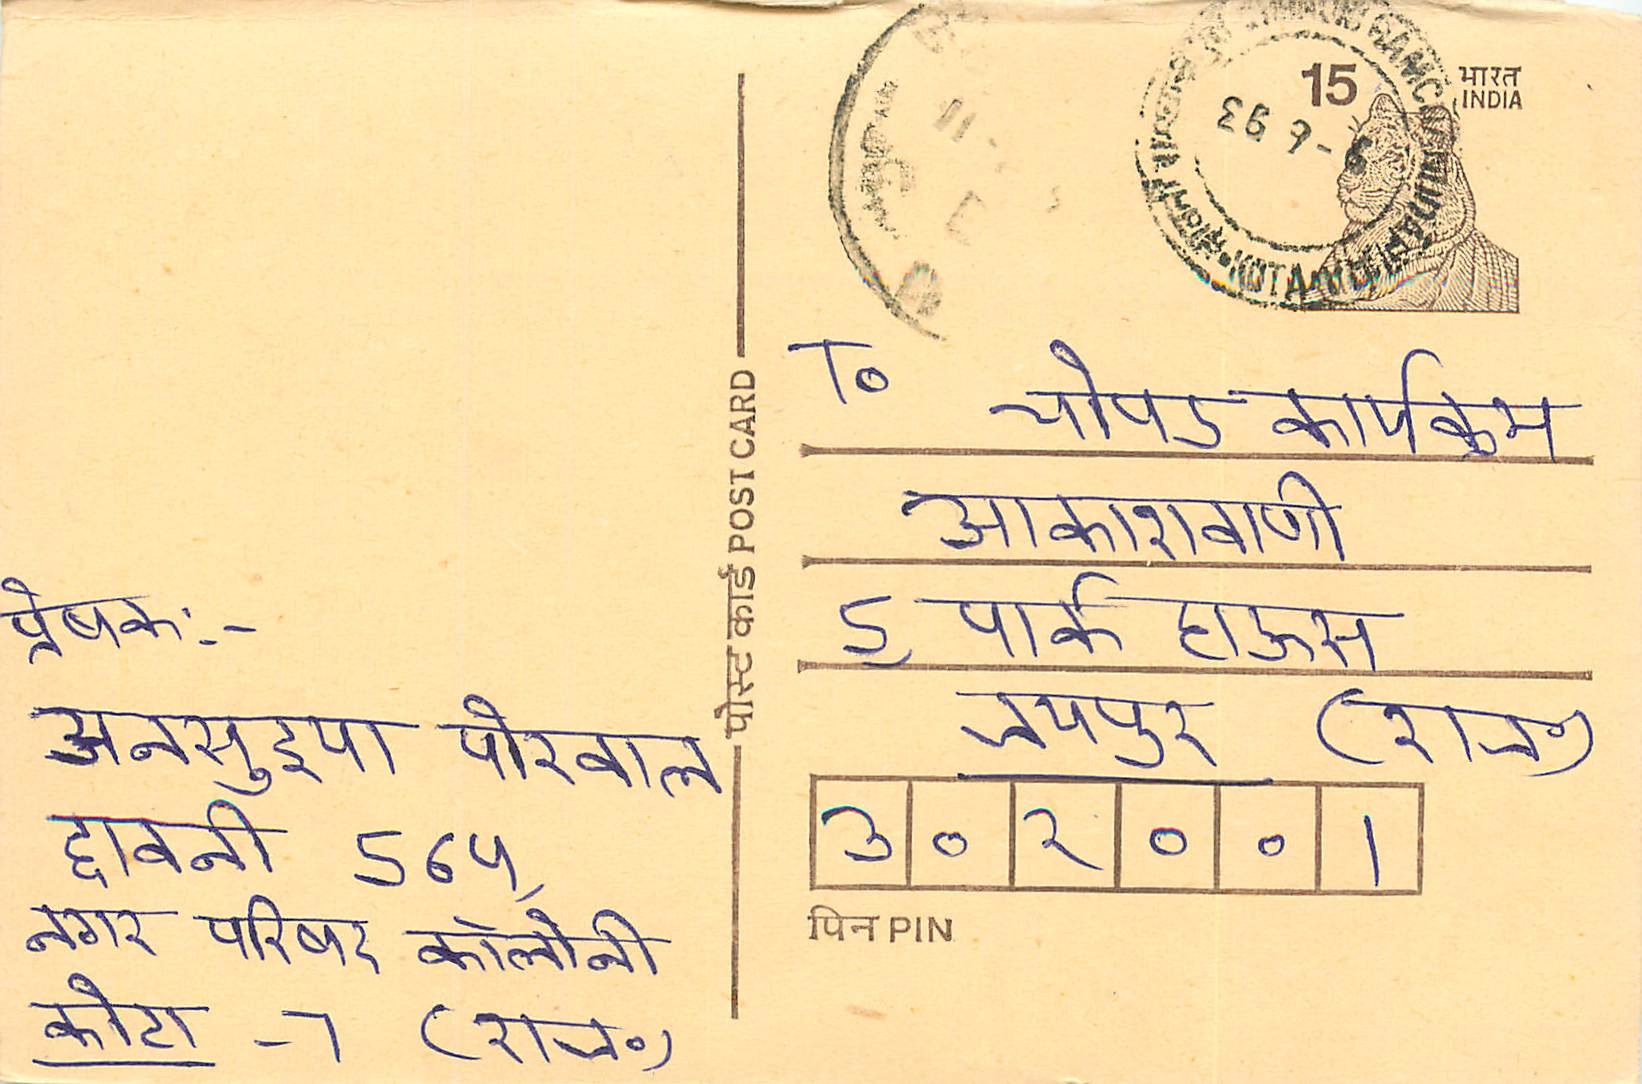 15
भारत
INDIA
9-6 93
KOTA
पोस्ट कार्ड POST CARD
To
चोपड कार्यक्रम
आकाशवाणी
5 पार्क हाऊस
जयपुर (राज॰)
३०२००१
पिन PIN
प्रेषक:-
अनसुइया पोरवाल
छावनी 564
नगर परिषद कॉलोनी
कोटा -7 (राज॰)